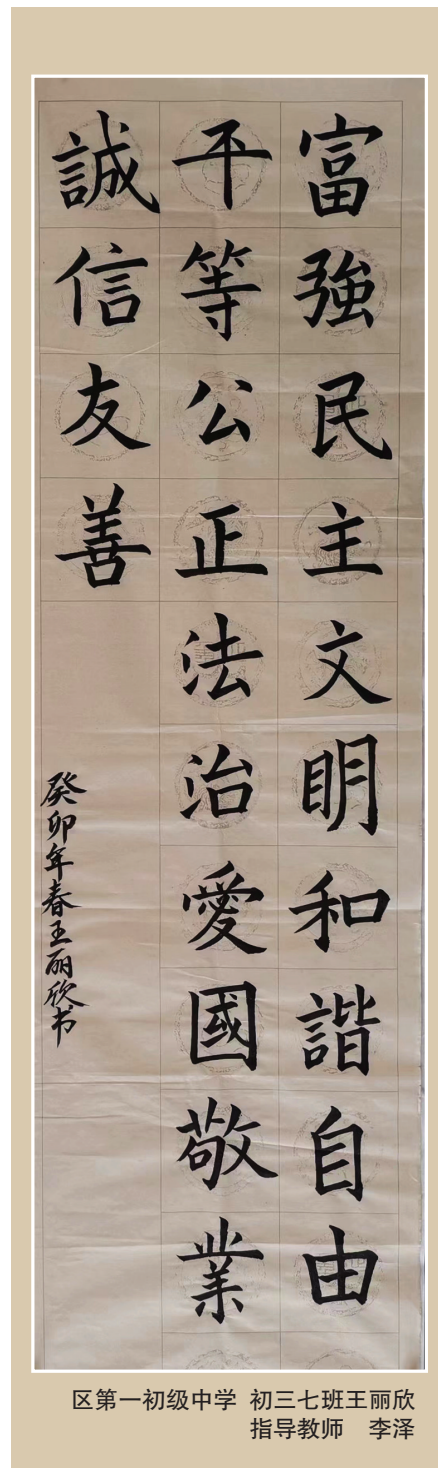 富強民主文明和諧自由
平等公正法治愛國敬業
誠信友善
癸卯年春王丽欣书
区第一初级中学 初三七班王丽欣
指导教师 李泽